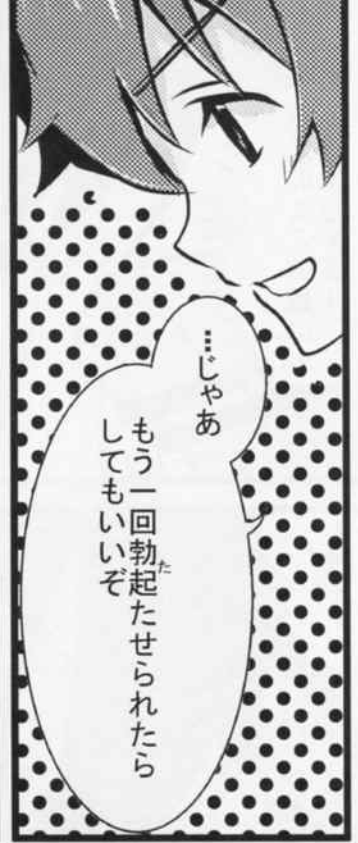 …じゃあ
もう一回勃起たせられたら
してもいいぞ